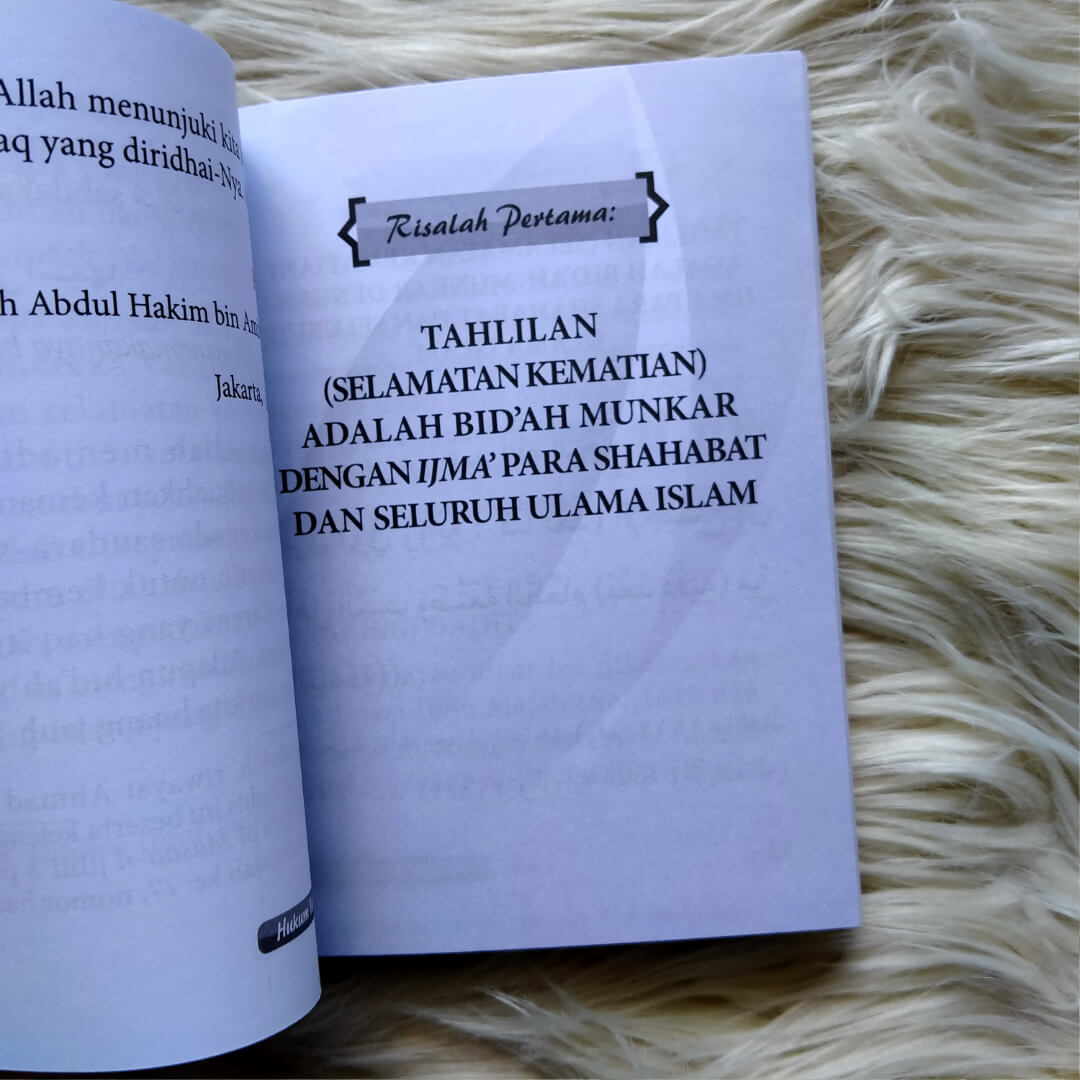 Allah menunjuki kita
yang diridhai-Nya.
Abdul Hakim bin
Jakarta,
Hukum
Risalah Pertama:
TAHLILAN
(SELAMATAN KEMATIAN)
ADALAH BID'AH MUNKAR
DENGAN IJMA' PARA SHAHABAT
DAN SELURUH ULAMA ISLAM